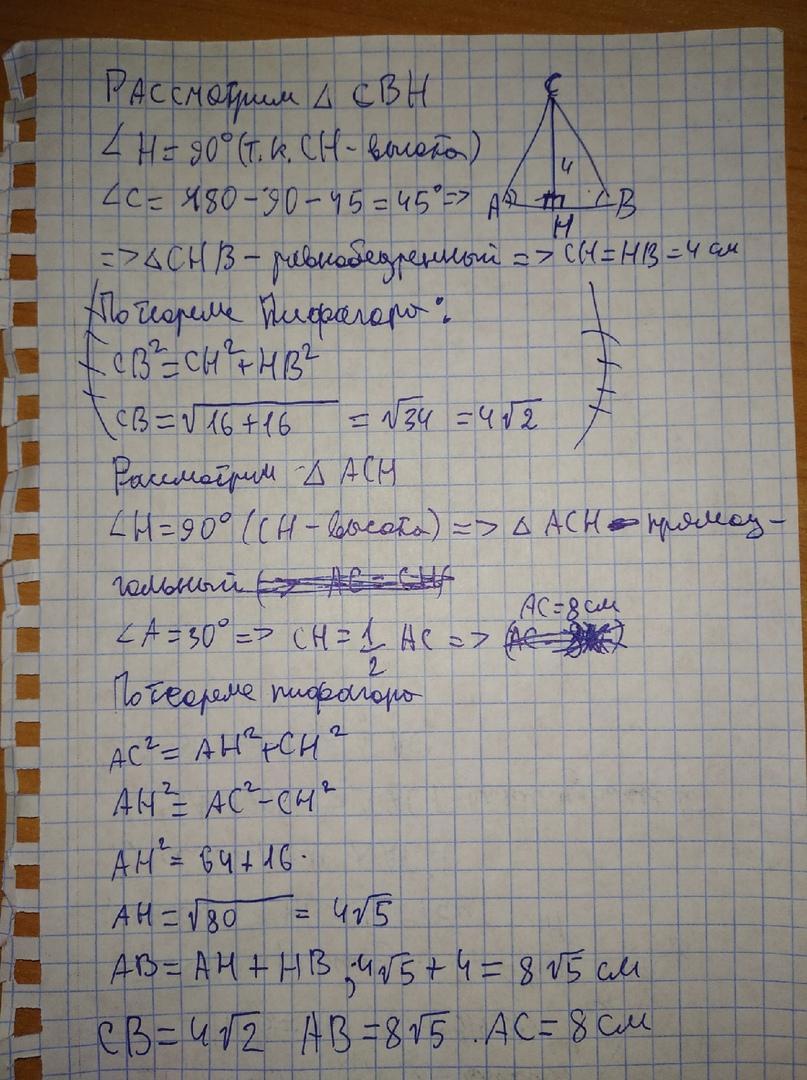 Рассмотрим △ CBH
∠H = 90° (т.к. CH - высота)
∠C = 180 - 90 - 45 = 45° =>
C
4
A
H
B
=> △CHB - равнобедренный => CH = HB = 4 см
По теореме Пифагора:
CB² = CH² + HB²
CB = √16 + 16 = √34 = 4√2
Рассмотрим △ ACH
∠H = 90° (CH - высота) => △ ACH - прямоу-
гольный
∠A = 30° => CH = 1/2 AC => AC = 8 см
По теореме пифагора
AC² = AH² + CH²
AH² = AC² - CH²
AH² = 64 + 16
AH = √80 = 4√5
AB = AH + HB, 4√5 + 4 = 8√5 см
CB = 4√2 AB = 8√5 . AC = 8 см